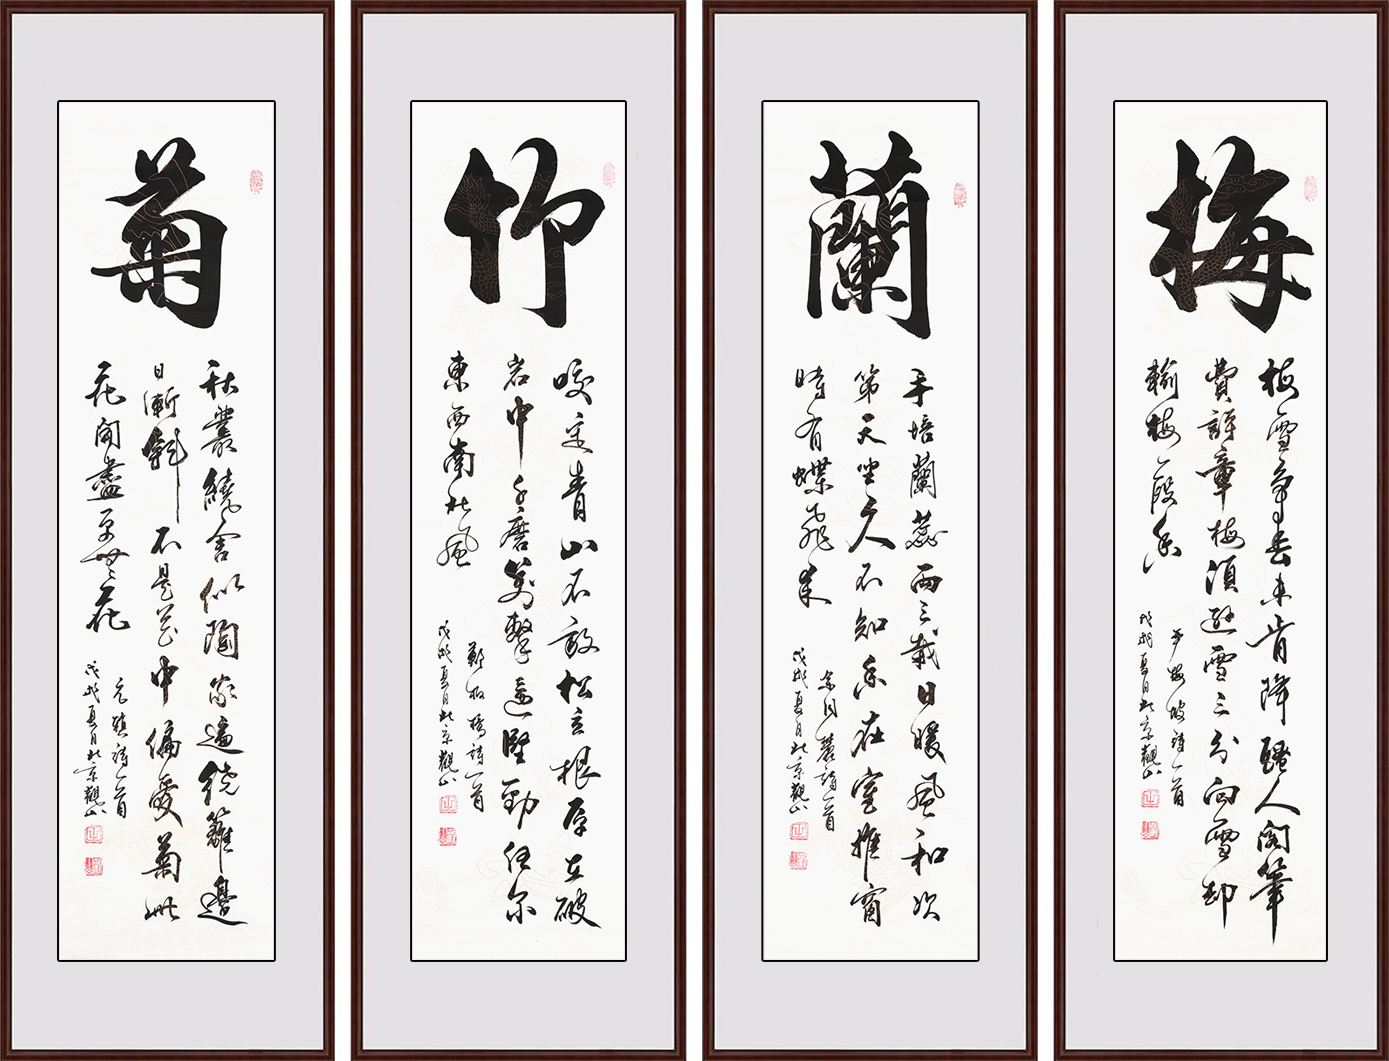 梅
梅雪爭春未肯降騷人閣筆
費評章梅須遜雪三分白雪却
輸梅一段香
芦梅坡詩一首
戊戌夏月北京觀山
蘭
手培蘭蕊兩三栽日暖風和次
第天坐久不知香在室推窗
時有蝶飛來
余同麓詩一首
戊戌夏月北京觀山
竹
咬定青山不放松立根原在破
岩中千磨萬擊還堅勁任尔
東西南北風
鄭板橋詩一首
戊戌夏月北京觀山
菊
秋叢繞舍似陶家遍繞籬邊
日漸斜不是花中偏愛菊此
花開盡更無花
元稹詩一首
戊戌夏月北京觀山